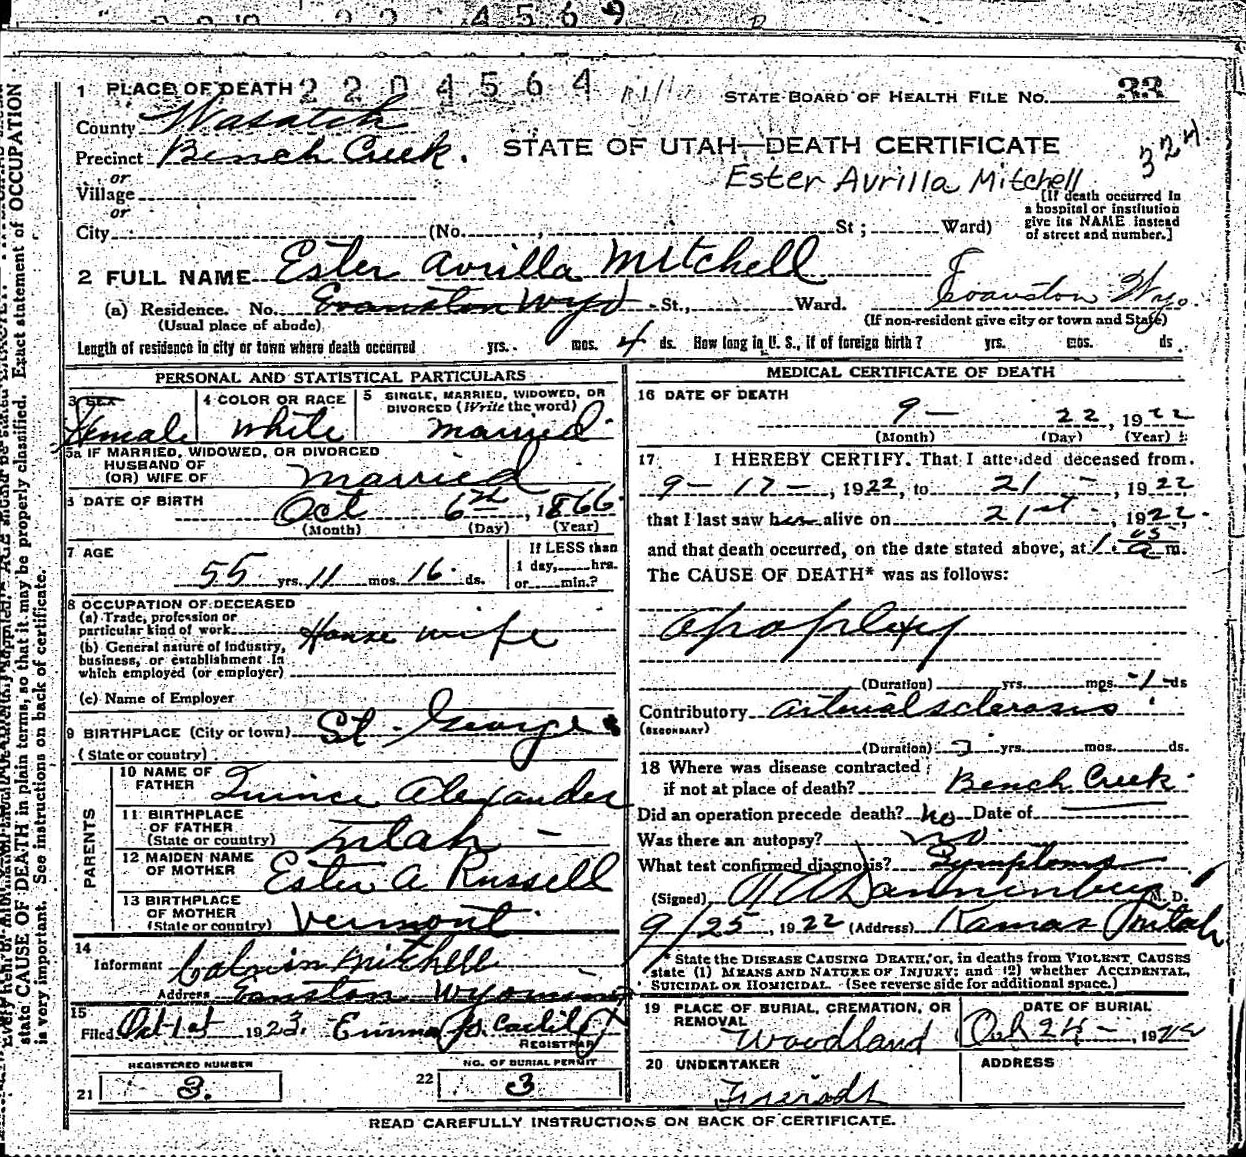 4569
1 PLACE OF DEATH 2204564
STATE BOARD OF HEALTH FILE NO. 33
County Wasatch
Precinct Bench Creek.
STATE OF UTAH—DEATH CERTIFICATE
324
or
Ester Avrilla Mitchell
Village
or
[If death occurred in
a hospital or institution
give its NAME instead
of street and number.]
City (No. , St ; Ward)
2 FULL NAME Ester Avrilla Mitchell
(a) Residence. No. Evanston Wyo St., Ward. Evanston Wyo.
(Usual place of abode) (If non-resident give city or town and State)
Length of residence in city or town where death occurred yrs. mos. 4 ds. How long in U. S., if of foreign birth? yrs. mos. ds.
PERSONAL AND STATISTICAL PARTICULARS
3 SEX
Female
4 COLOR OR RACE
White
5 SINGLE, MARRIED, WIDOWED, OR
DIVORCED (Write the word)
married
5a IF MARRIED, WIDOWED, OR DIVORCED
HUSBAND OF
(OR) WIFE OF married
6 DATE OF BIRTH
Oct 6th, 1866
(Month) (Day) (Year)
7 AGE
55 yrs. 11 mos. 16 ds.
If LESS than
1 day, hrs.
or min.?
8 OCCUPATION OF DECEASED
(a) Trade, profession or
particular kind of work House wife
(b) General nature of industry,
business, or establishment in
which employed (or employer)
(c) Name of Employer
9 BIRTHPLACE (City or town) St. George
(State or country)
PARENTS
10 NAME OF
FATHER Quince Alexander
11 BIRTHPLACE
OF FATHER
(State or country) Utah -
12 MAIDEN NAME
OF MOTHER Ester A Russell
13 BIRTHPLACE
OF MOTHER
(State or country) Vermont
14
Informant Calvin Mitchell
Address Evanston Wyoming
15
Filed Oct 1st 1923. Emma
REGISTRAR
REGISTERED NUMBER
21 3.
NO. OF BURIAL PERMIT
22 3
MEDICAL CERTIFICATE OF DEATH
16 DATE OF DEATH
9- 22, 1922
(Month) (Day) (Year)
17 I HEREBY CERTIFY. That I attended deceased from
9-17-, 1922, to 21 -, 1922
that I last saw her alive on 21st, 1922.
and that death occurred, on the date stated above, at 1.05 a m.
The CAUSE OF DEATH* was as follows:
apoplexy
(Duration) yrs. mos. -1- ds
Contributory arterial sclerosis
(SECONDARY)
(Duration) yrs. mos. ds.
18 Where was disease contracted
if not at place of death? Bench Creek.
Did an operation precede death? no Date of
Was there an autopsy? no.
What test confirmed diagnosis? Symptoms
(Signed) M. D.
9/25, 1922 (Address) Kamas Utah
* State the DISEASE CAUSING DEATH, or, in deaths from VIOLENT CAUSES
state (1) MEANS AND NATURE OF INJURY; and (2) whether ACCIDENTAL,
SUICIDAL OR HOMICIDAL. (See reverse side for additional space.)
19 PLACE OF BURIAL, CREMATION, OR
REMOVAL
Woodland
DATE OF BURIAL
24-, 19
20 UNDERTAKER
Friends
ADDRESS
READ CAREFULLY INSTRUCTIONS ON BACK OF CERTIFICATE.
state CAUSE OF DEATH in plain terms, so that it may be properly classified. Exact statement of OCCUPATION
is very important. See instructions on back of certificate.